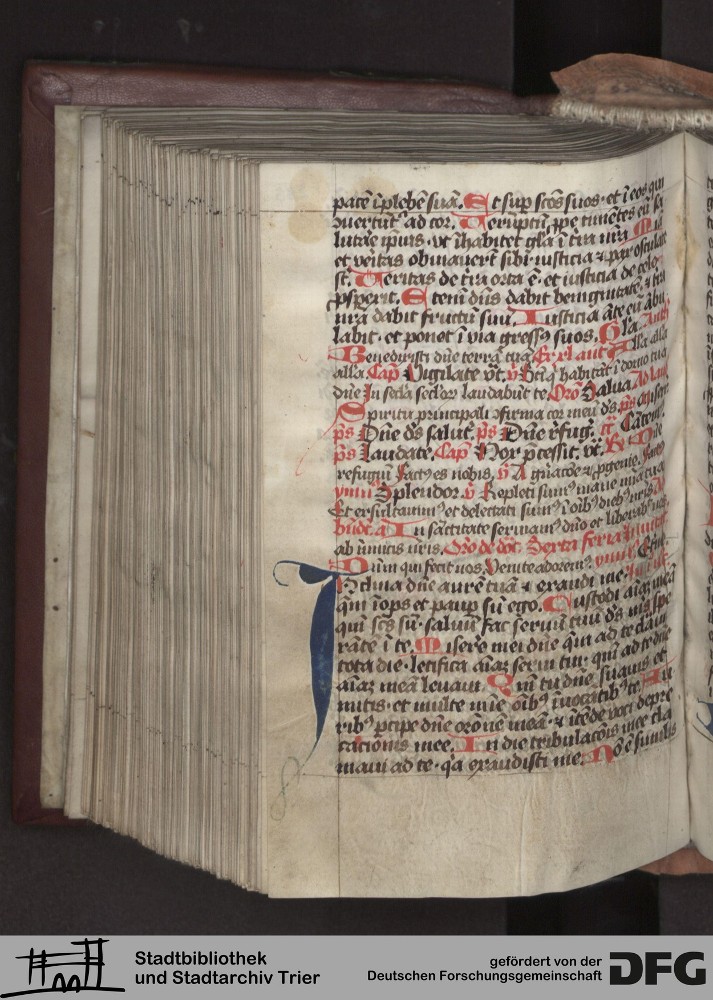 pacē ī plebē suā. Et sup sc̄os suos · et ī eos qui
ɔuertūt ad cor. Verūptn̄ ꝓpe timētes eū sa
lutāe ip̄ius · vt īhabitet gl̄a ī t̄ra nr̄a
et vēitas obuiauert̄ sibi · iusticia ⁊ pax osculate
st̄. Veritas de t̄ra orta ē · et iusticia de celo
ꝓsperit. Eteni dn̄s dabit benignitatē · ⁊ t̄ra
nr̄a dabit fructū suū. Iusticia āte eū ābu
labit · et ponet ī via gressꝰ suos. Gl̄a. Anth
Benedixisti dn̄e terrā tuā Er xl aut̄ All̄a all̄a
all̄a. Cap̄ Vigilate vt̄. v̄ Bt̄i qͥ habitāt ī domo tua
dn̄e In sc̄la sc̄loꝝ laudabūt te Oro Salua Ad lau
Spiritu principali ɔfirma cor meū ds̄ p̄s
p̄s Dn̄e ds̄ salut̄. p̄s Dn̄e r̄fuḡ.
p̄s Laudate. Cap̄ Nox p̄cessit. vt̄. Dn̄e
refugiū factꝰ es nobis. v̄ A gn̄acōe ⁊ ꝓgenie.
ymn̄ Splendor. v̄ Repleti sumꝰ mane mīa tua
Et exsultauimꝰ et delectati sumꝰ ī oībꝰ diebꝰ nr̄is
bn̄dc̄. a In sāctitate seruiamꝰ dn̄o et liberabit nos
ab inimicis nr̄is. Oro de dōc. Sexta feria
Dn̄m qui fecit nos. Venite adoremꝰ. ymn̄
Inclina dn̄e aurē tuā ⁊ exaudi me ·
qm̄ īops et paup sū ego. Custodi aīaꝫ meā
qm̄ sc̄s sū · saluū fac seruū tuū ds̄ ms̄ spe
rātē ī te. Misere mei dn̄e qm̄ ad te claui
tota die · letifica aīaꝫ serui tui · qm̄ ad te dn̄e
aīaꝫ meā leuaui. Qm̄ tu dn̄e suauis et
mitis · et multe mīe oībꝰ īuocātibꝰ te. Au
ribꝰ p̄cipe dn̄e or̄onē meā · ⁊ ītēde voci depre
cationis mee. In die tribulacōis mee cla
maui ad te · qa exaudisti me. Nō ē similis
Stadtbibliothek
und Stadtarchiv Trier
gefördert von der
Deutschen Forschungsgemeinschaft
DFG